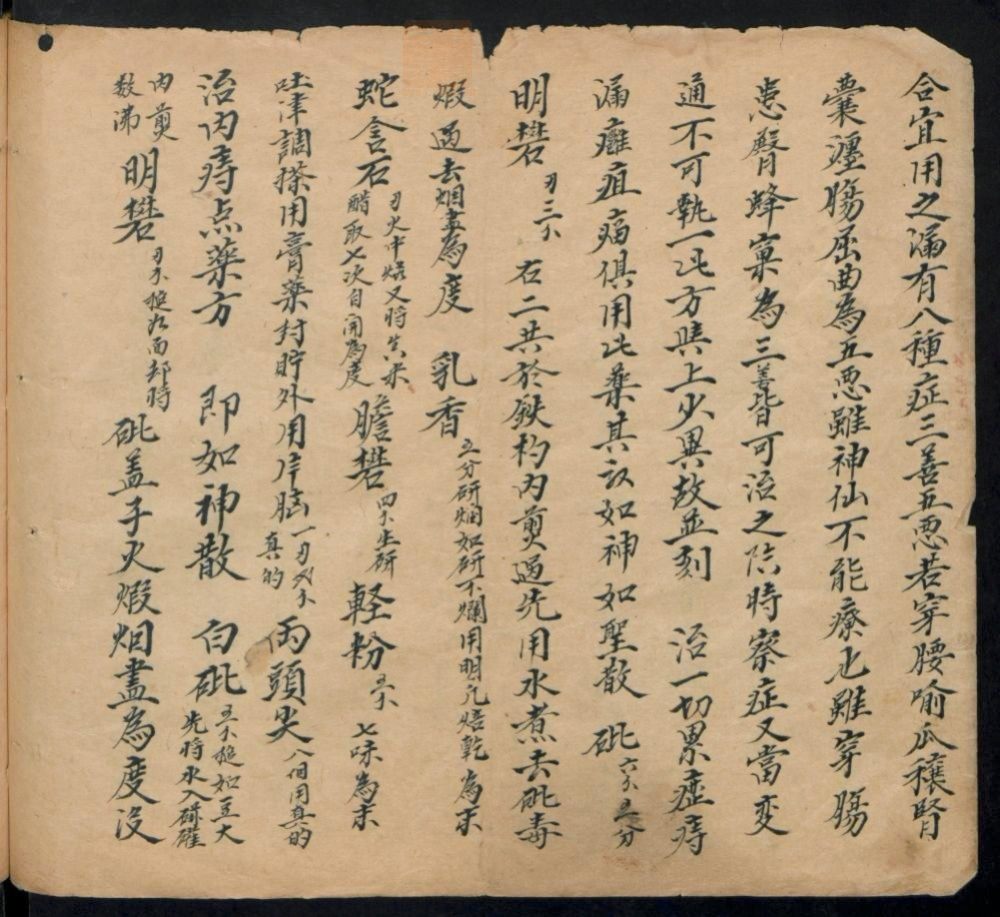 合宜用之漏有八種症三善五惡若穿腰喻瓜穰腎
囊瀍腸屈曲為五惡雖神仙不能療也雖穿腸
患臀蜂窠為三善皆可治之臨時察症又當变
通不可執一此方與上少異故並刻 治一切累症痔
漏癰疽病俱用此藥其效如神如聖散 砒六个五分
明礬 刃三个 右二共於鉄杓內煎過先用水煮去砒毒
煆過去烟盡為度 乳香 五分研烟如研不爛用明凡焙乾為末
蛇含石 刃火中焙又將
醋取七次自開為度 膽礬 四个生研 軽粉 七味為末
吐津調搽用膏藥封貯外用片脑一刃 真的 両頭尖 八個用真的
治内痔点藥方 即如神散 白砒 如豆大
先將水入罐
内煎
数沸 明礬 面却時 砒盖子火煆烟盡為度没